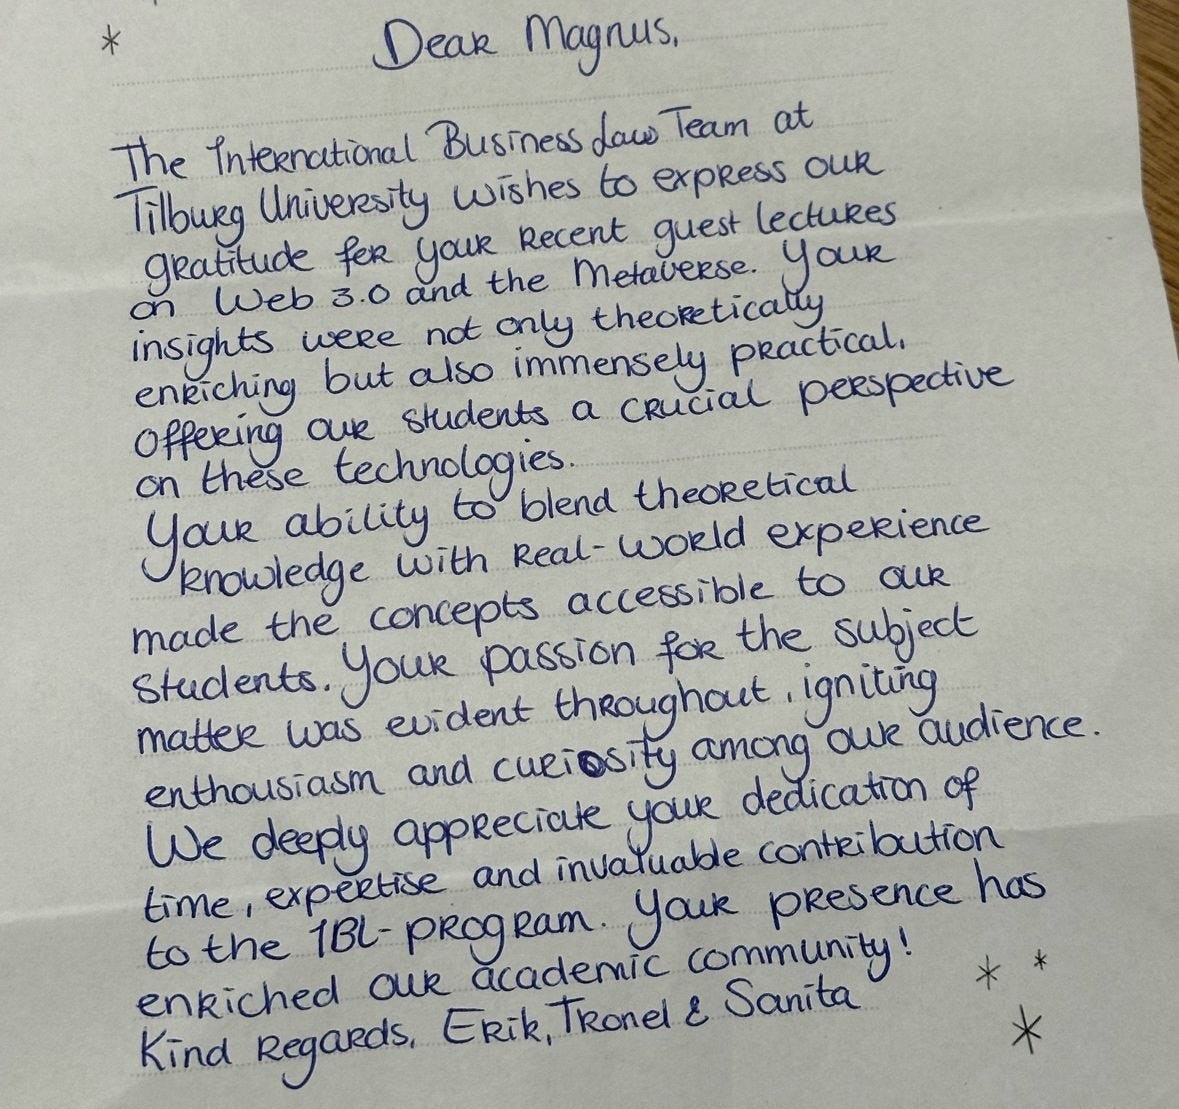 Dear Magnus,
The International Business Law Team at
Tilburg University wishes to express our
gratitude for your recent guest lectures
on Web 3.0 and the Metaverse. Your
insights were not only theoretically
enriching but also immensely practical,
offering our students a crucial perspective
on these technologies.
Your ability to blend theoretical
knowledge with real-world experience
made the concepts accessible to our
students. Your passion for the subject
matter was evident throughout, igniting
enthousiasm and curiosity among our audience.
We deeply appreciate your dedication of
time, expertise and invaluable contribution
to the IBL-program. Your presence has
enriched our academic community!
Kind regards, Erik, Tronel & Sanita